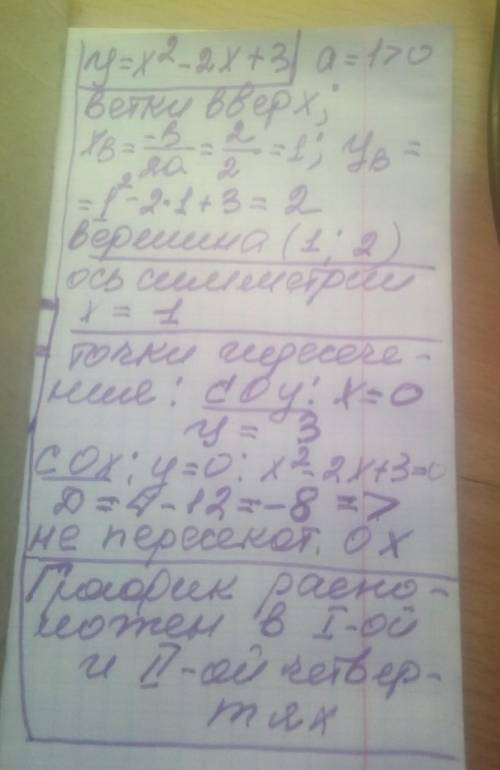 y=x²-2x+3 a=1>0
ветки вверх;
xв=-в/2a=2/2=1; yв=
=1²-2·1+3=2
вершина (1; 2)
ось симметрии
x=1
точки пересече-
ния: с Oy: x=0
y= 3
с Ox; y=0: x²-2x+3=0
D=4-12=-8=>
не пересекат. Ox
График распо-
ложен в I-ой
и II-ой четвер-
тях